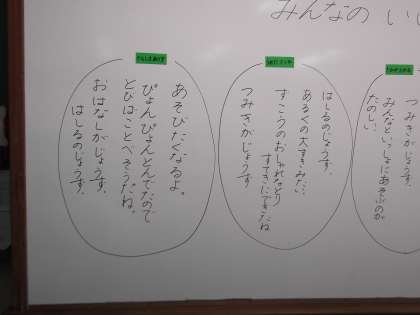 みんなの い
つみきがじょうず、
みんなといっしょにあそぶのが
たのしい、
はしるのじょうず、
あるくの大すきみた
つみきがじょうず
すてきにできたね
あそびたくなるよ。
ぴょんぴょんとんでたので
とびばことべそうだね。
おはなしがじょうず、
はしるのじょうず、